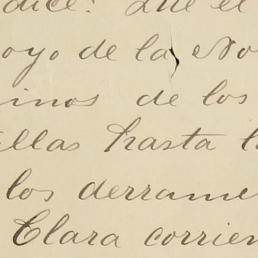 dice: Que el
oyo de la No
inos de los
llas hasta l
los derrame
Clara corrien